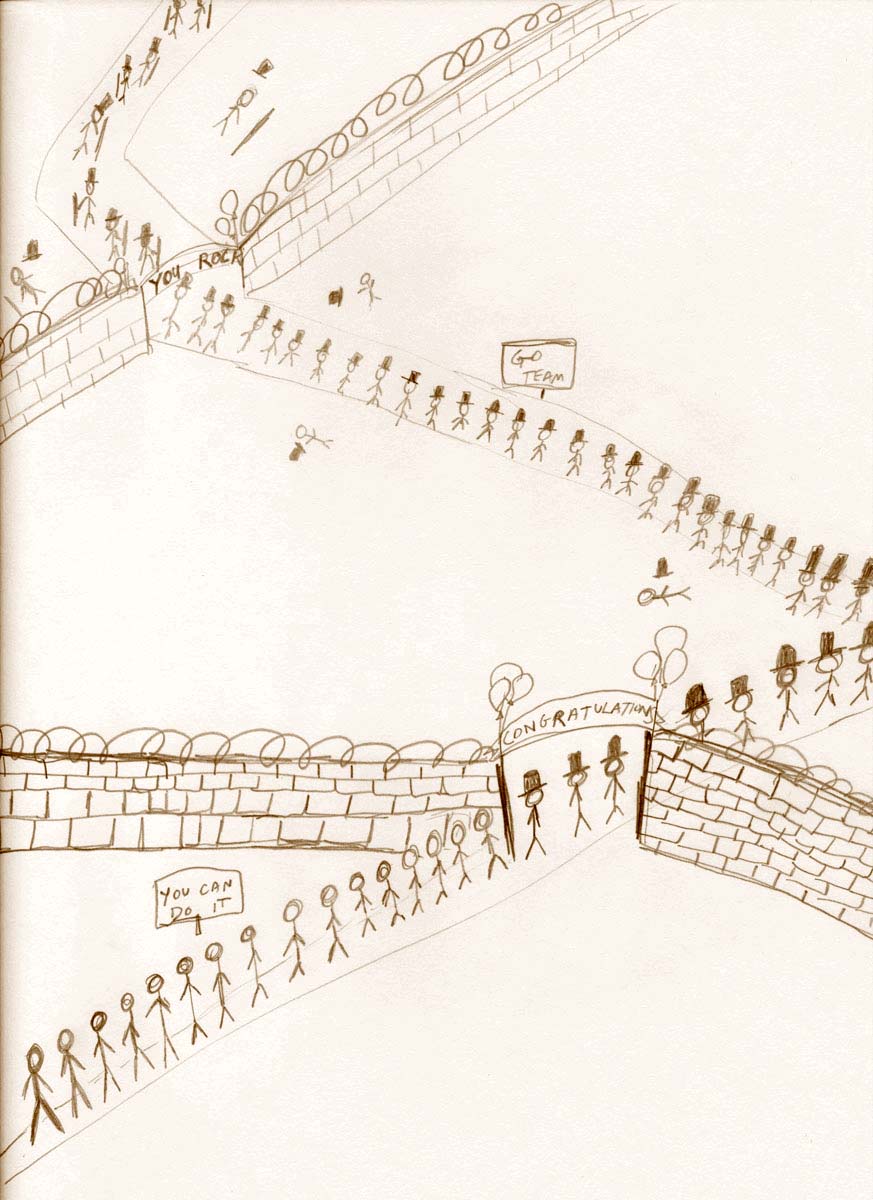 YOU ROCK
GO
TEAM
CONGRATULATIONS
YOU CAN
DO IT